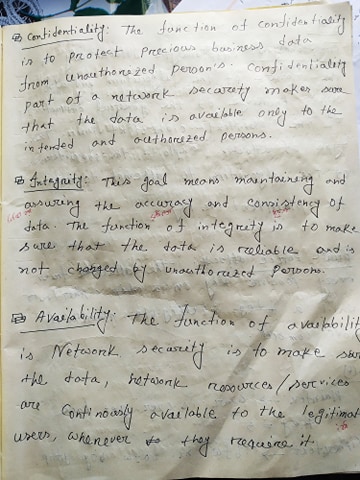 Confidentiality: The function of confidentiality
is to protect precious business data
from unauthorized person's. Confidentiality
part of a network security makes sure
that the data is available only to the
intended and authorized persons.
Integrity: This goal means maintaining and
assuring the accuracy and consistency of
data. The function of integrety is to make
sure that the data is reliable and is
not changed by unauthorized persons.
Availability: The function of availability
is Network security is to make sur
the data, network resources/services
are Continously available to the legitimat
users, whenever they require it